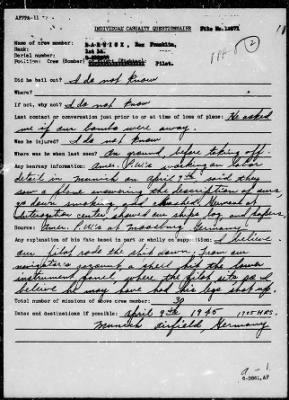 AFPPA-11
INDIVIDUAL CASUALTY QUESTIONNAIRE
Name of crew member: B-A-R-W-I-C-K, Rex Franklin,
File No.
Rank: 1st Lt.
Serial number:
Position: Crew (Bomber) Pilot.
Did he bail out? I do not know
Where?
If not, why not? I do not know
Last contact or conversation just prior to or at time of loss of plane: He asked
me if our bombs were away.
Was he injured? I do not know
Where was he when last seen? On ground, before taking off.
Any hearsay information: Amer. P.W's working on labor
detail in Munich on April 9th said they
saw a plane answering the description of ours,
go down smoking and crashed. Germans at
interrogation center, showed our ships log and papers.
Source: Amer. P.W's at Moosburg, Germany
Any explanation of his fate based in part or wholly on supposition: I believe
our pilot rode the ship down. From our
navigator's account, a shell hit the lower
instrument panel, where the pilot sits so I
believe he may have had his legs shot up.
Total number of missions of above crew member: 30
Dates and destinations if possible: April 9th 1945 1705 HRS.
Munich Airfield, Germany
6-3861,AF